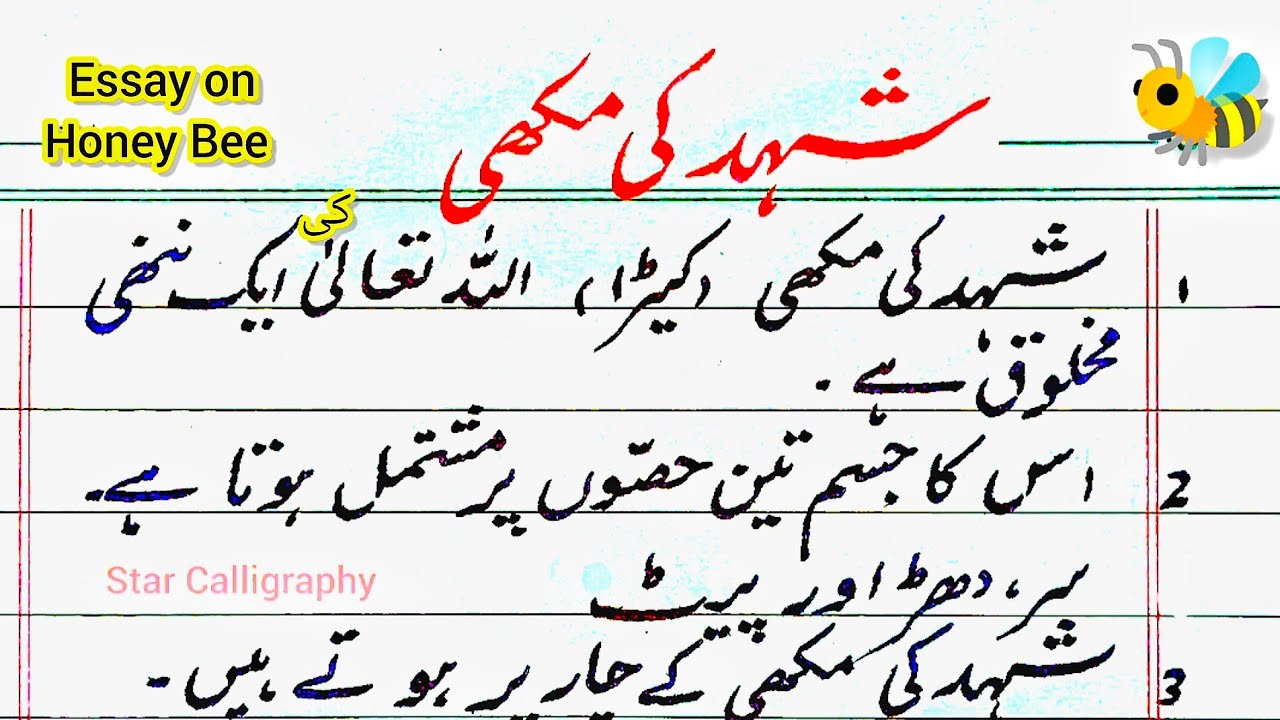 Essay on
Honey Bee
شہد کی مکھی
1 شہد کی مکھی (کیڑا) اللہ تعالیٰ کی ایک ننھی
مخلوق ہے۔
2 اس کا جسم تین حصّوں پر مشتمل ہوتا ہے۔
سر، دھڑ اور پیٹ
Star Calligraphy
3 شہد کی مکھی کے چار پر ہوتے ہیں۔